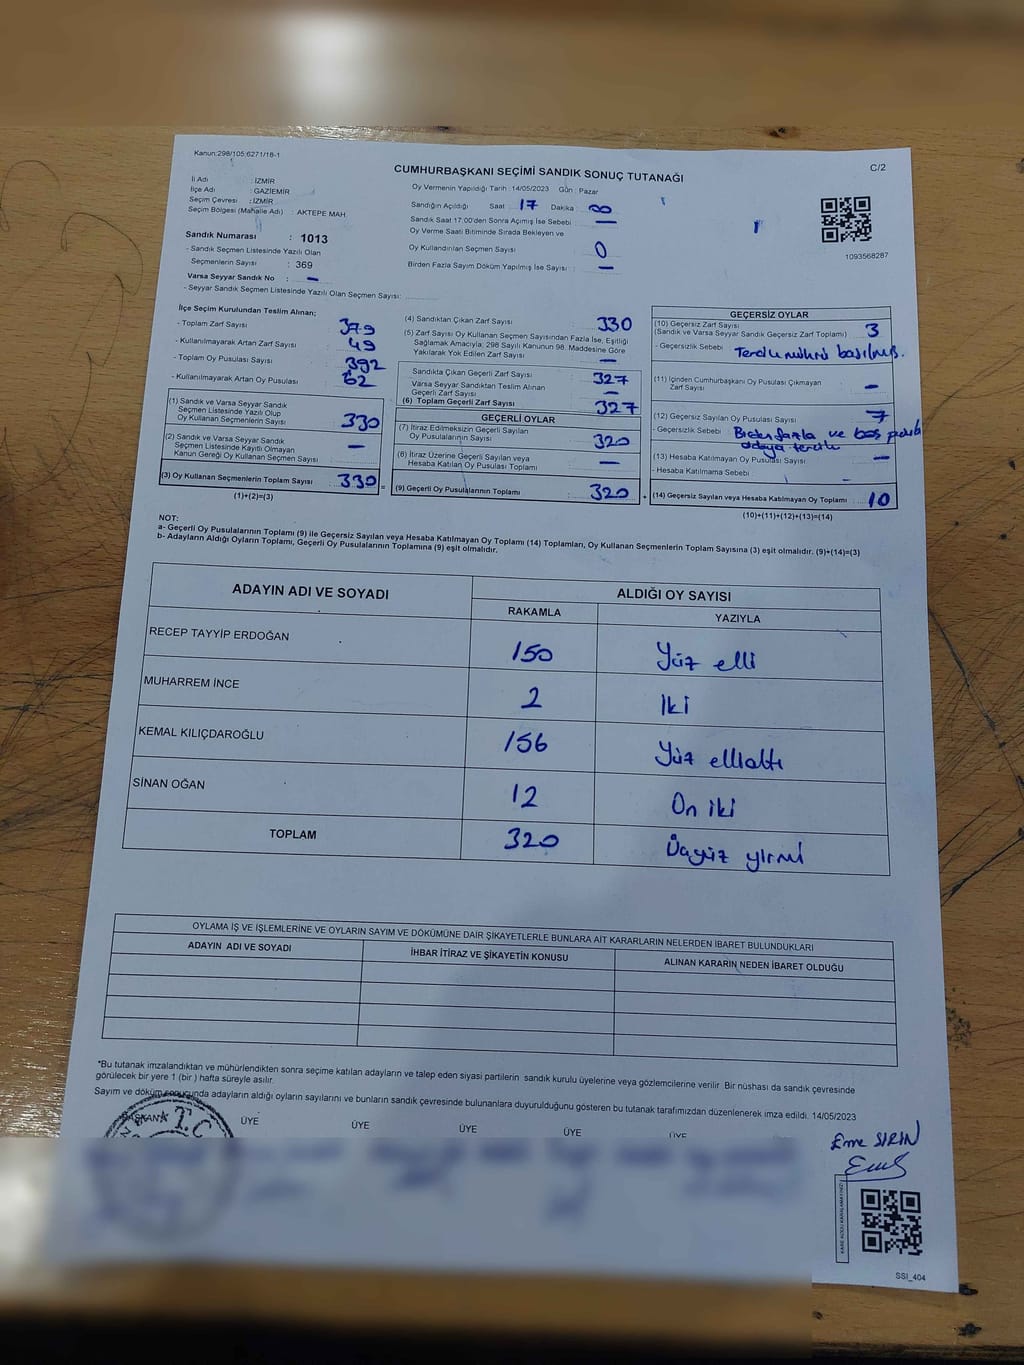 Kanun:298/105;6271/18-1
CUMHURBAŞKANI SEÇİMİ SANDIK SONUÇ TUTANAĞI
C/2
İli Adı : İZMİR
İlçe Adı : GAZİEMİR
Seçim Çevresi : İZMİR
Seçim Bölgesi (Mahalle Adı) : AKTEPE MAH.
Sandık Numarası : 1013
- Sandık Seçmen Listesinde Yazılı Olan
Seçmenlerin Sayısı : 369
Varsa Seyyar Sandık No : -
- Seyyar Sandık Seçmen Listesinde Yazılı Olan Seçmen Sayısı:
Oy Vermenin Yapıldığı Tarih : 14/05/2023 Gün : Pazar
Sandığın Açıldığı Saat 17 Dakika 00
Sandık Saat 17:00'den Sonra Açılmış İse Sebebi -
Oy Verme Saati Bitiminde Sırada Bekleyen ve
Oy Kullandırılan Seçmen Sayısı 0
Birden Fazla Sayım Döküm Yapılmış İse Sayısı : -
1093568287
İlçe Seçim Kurulundan Teslim Alınan;
- Toplam Zarf Sayısı 379
- Kullanılmayarak Artan Zarf Sayısı 49
- Toplam Oy Pusulası Sayısı 392
- Kullanılmayarak Artan Oy Pusulası 62
(1) Sandık ve Varsa Seyyar Sandık
Seçmen Listesinde Yazılı Olup
Oy Kullanan Seçmenlerin Sayısı 330
(2) Sandık ve Varsa Seyyar Sandık
Seçmen Listesinde Kayıtlı Olmayan
Kanun Gereği Oy Kullanan Seçmen Sayısı -
(3) Oy Kullanan Seçmenlerin Toplam Sayısı 330 =
(1)+(2)=(3)
(4) Sandıktan Çıkan Zarf Sayısı 330
(5) Zarf Sayısı Oy Kullanan Seçmen Sayısından Fazla İse, Eşitliği
Sağlamak Amacıyla; 298 Sayılı Kanunun 98. Maddesine Göre
Yakılarak Yok Edilen Zarf Sayısı -
Sandıkta Çıkan Geçerli Zarf Sayısı 327
Varsa Seyyar Sandıktan Teslim Alınan
Geçerli Zarf Sayısı -
(6) Toplam Geçerli Zarf Sayısı 327
GEÇERLİ OYLAR
(7) İtiraz Edilmeksizin Geçerli Sayılan
Oy Pusulalarının Sayısı 320
(8) İtiraz Üzerine Geçerli Sayılan veya
Hesaba Katılan Oy Pusulası Toplamı -
(9) Geçerli Oy Pusulalarının Toplamı 320 +
GEÇERSİZ OYLAR
(10) Geçersiz Zarf Sayısı
(Sandık ve Varsa Seyyar Sandık Geçersiz Zarf Toplamı) 3
- Geçersizlik Sebebi Tercih mührü basılmış.
(11) İçinden Cumhurbaşkanı Oy Pusulası Çıkmayan
Zarf Sayısı -
(12) Geçersiz Sayılan Oy Pusulası Sayısı 7
- Geçersizlik Sebebi Birden fazla ve boş pusula
adaya tercih
(13) Hesaba Katılmayan Oy Pusulası Sayısı -
- Hesaba Katılmama Sebebi -
(14) Geçersiz Sayılan veya Hesaba Katılmayan Oy Toplamı 10
(10)+(11)+(12)+(13)=(14)
NOT:
a- Geçerli Oy Pusulalarının Toplamı (9) ile Geçersiz Sayılan veya Hesaba Katılmayan Oy Toplamı (14) Toplamları, Oy Kullanan Seçmenlerin Toplam Sayısına (3) eşit olmalıdır. (9)+(14)=(3)
b- Adayların Aldığı Oyların Toplamı, Geçerli Oy Pusulalarının Toplamına (9) eşit olmalıdır.
ADAYIN ADI VE SOYADI ALDIĞI OY SAYISI
RAKAMLA YAZIYLA
RECEP TAYYİP ERDOĞAN 150 Yüz elli
MUHARREM İNCE 2 Iki
KEMAL KILIÇDAROĞLU 156 Yüz ellialtı
SİNAN OĞAN 12 On iki
TOPLAM 320 Üçyüz yirmi
OYLAMA İŞ VE İŞLEMLERİNE VE OYLARIN SAYIM VE DÖKÜMÜNE DAİR ŞİKAYETLERLE BUNLARA AİT KARARLARIN NELERDEN İBARET BULUNDUKLARI
ADAYIN ADI VE SOYADI İHBAR İTİRAZ VE ŞİKAYETİN KONUSU ALINAN KARARIN NEDEN İBARET OLDUĞU
*Bu tutanak imzalandıktan ve mühürlendikten sonra seçime katılan adayların ve talep eden siyasi partilerin sandık kurulu üyelerine veya gözlemcilerine verilir. Bir nüshası da sandık çevresinde
görülecek bir yere 1 (bir ) hafta süreyle asılır.
Sayım ve döküm sonucunda adayların aldığı oyların sayılarını ve bunların sandık çevresinde bulunanlara duyurulduğunu gösteren bu tutanak tarafımızdan düzenlenerek imza edildi. 14/05/2023
BAŞKAN ÜYE ÜYE ÜYE ÜYE ÜYE
T.C.
Emre SIRIN
SSI_404